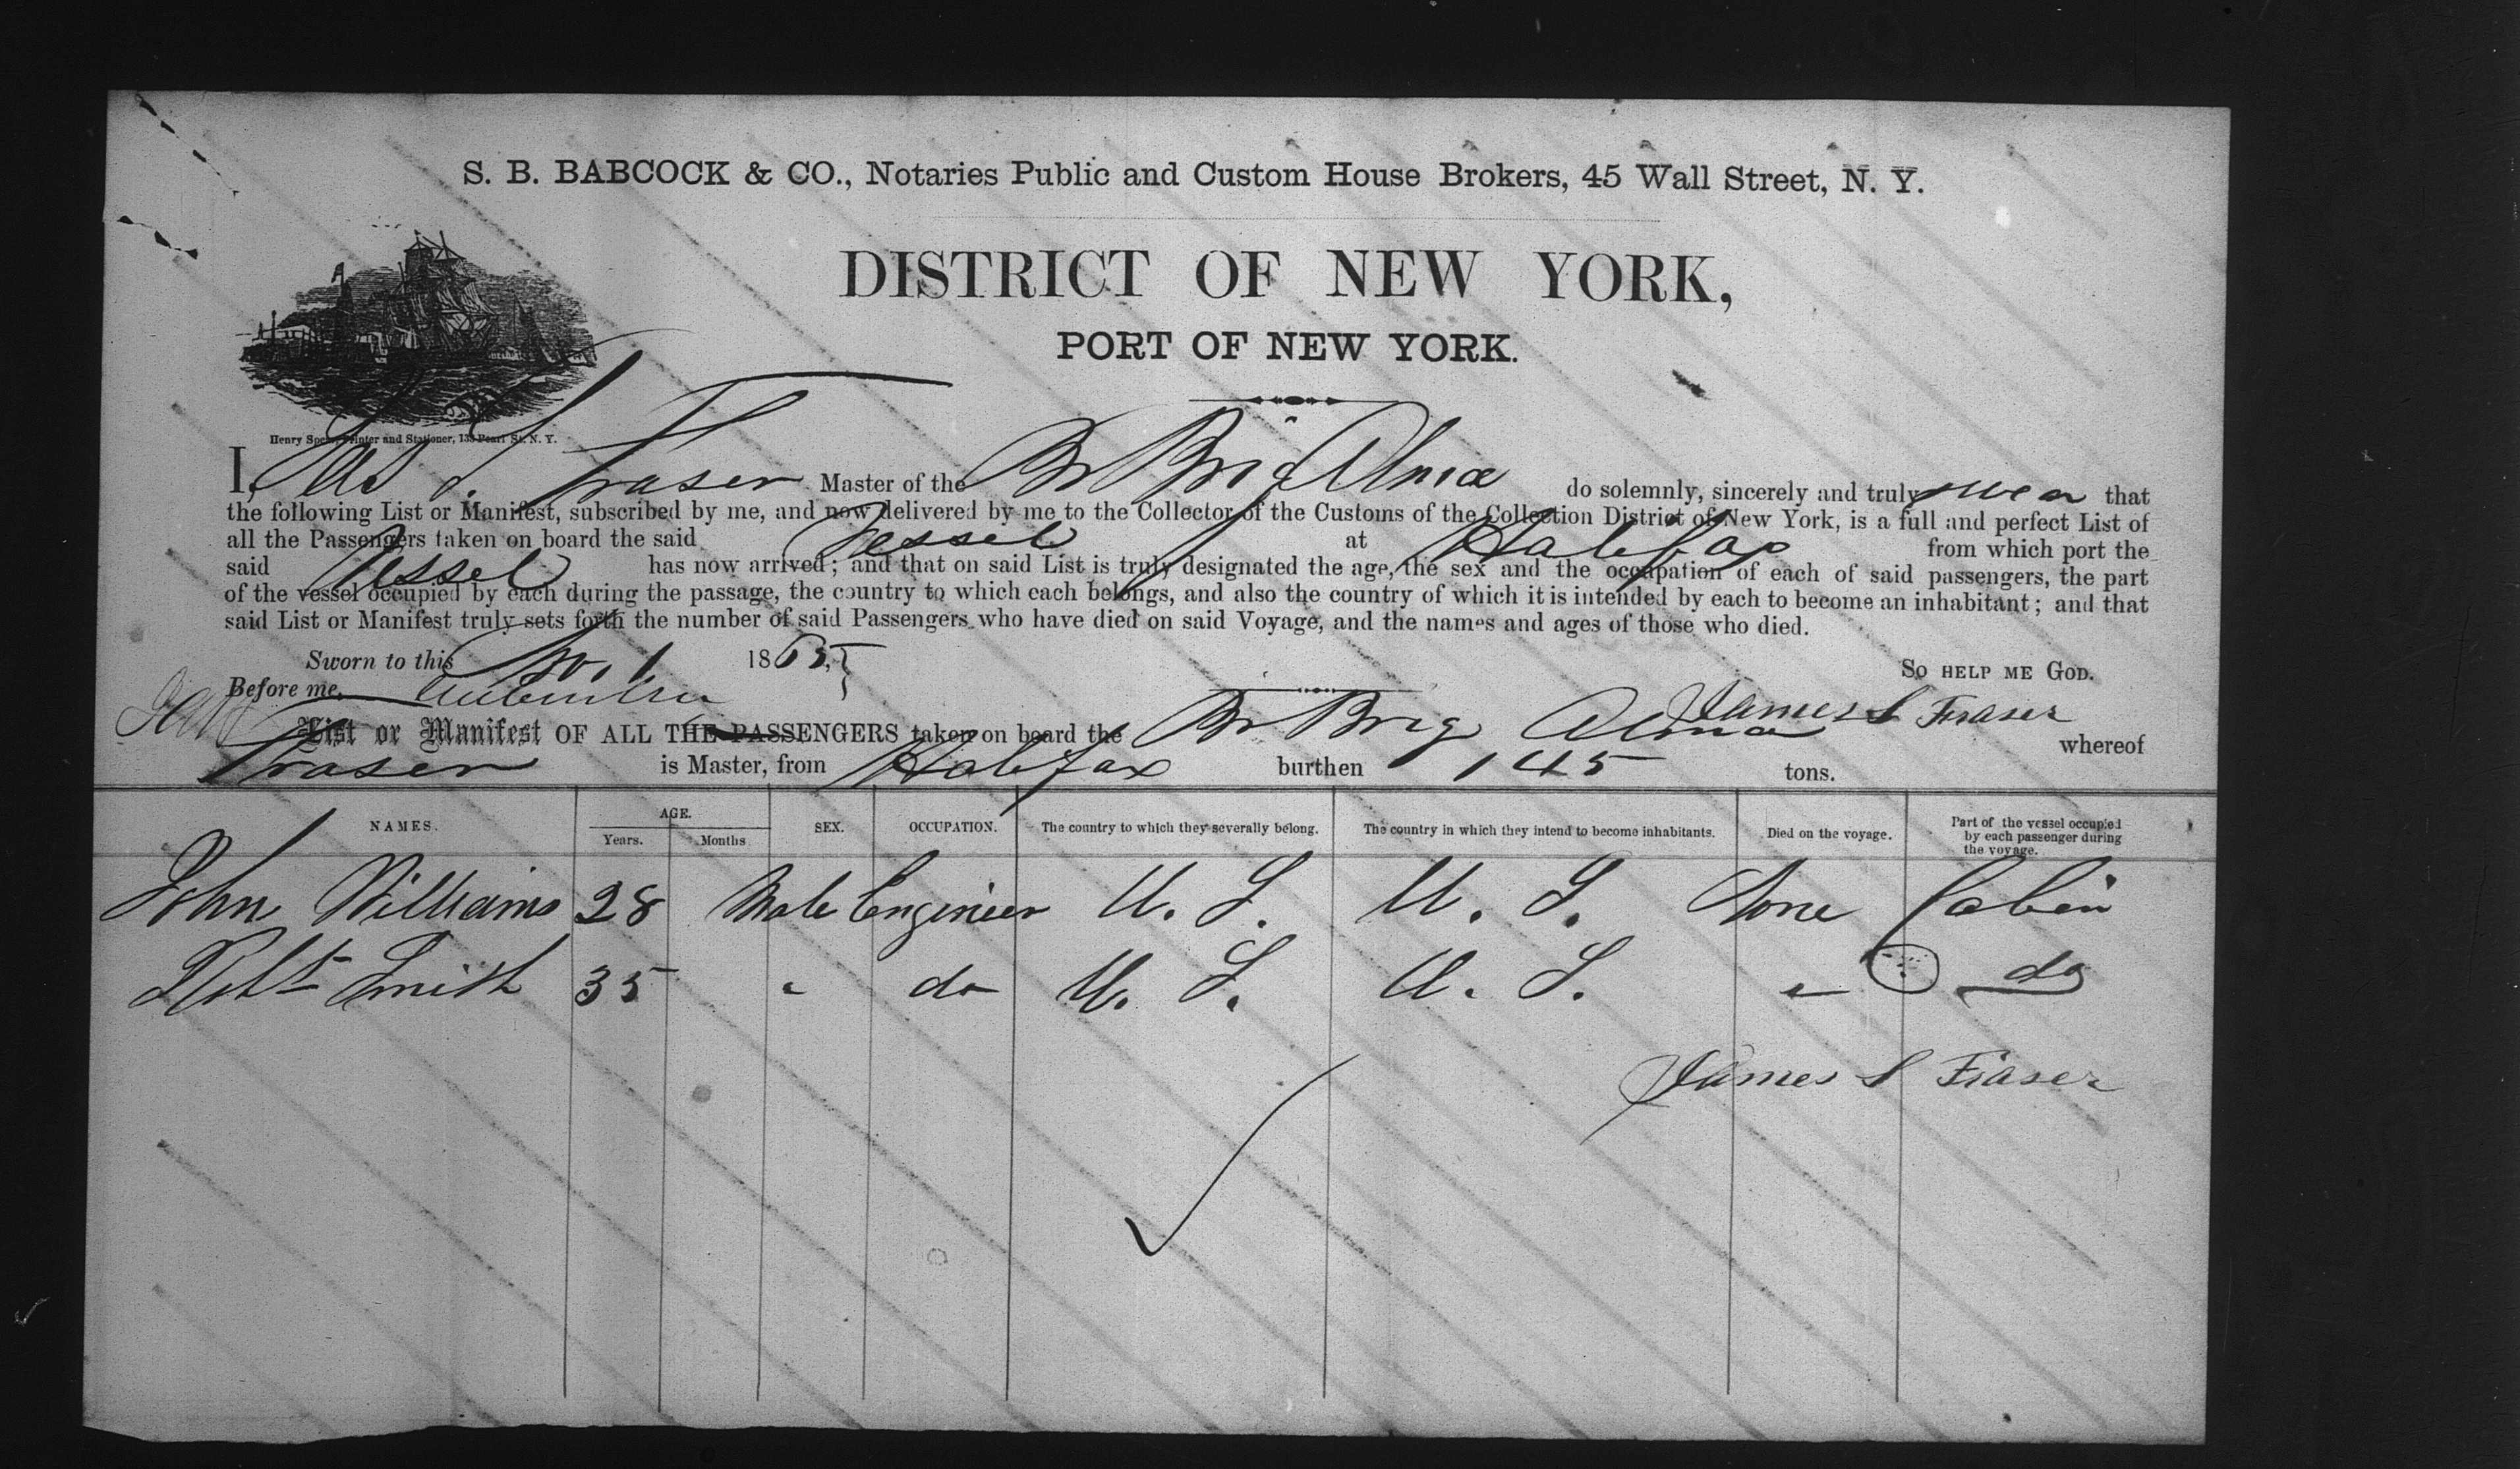 S. B. BABCOCK & CO., Notaries Public and Custom House Brokers, 45 Wall Street, N. Y.
DISTRICT OF NEW YORK,
PORT OF NEW YORK.
Henry Printer and Stationer, Pearl St. N. Y.
I, Jas S. Fraser Master of the Br Brig Alma do solemnly, sincerely and truly swear that
the following List or Manifest, subscribed by me, and now delivered by me to the Collector of the Customs of the Collection District of New York, is a full and perfect List of
all the Passengers taken on board the said Vessel at Halifax from which port the
said Vessel has now arrived; and that on said List is truly designated the age, the sex and the occupation of each of said passengers, the part
of the vessel occupied by each during the passage, the country to which each belongs, and also the country of which it is intended by each to become an inhabitant; and that
said List or Manifest truly sets forth the number of said Passengers who have died on said Voyage, and the names and ages of those who died.
Sworn to this 1 1865,
So HELP ME GOD.
Before me,
James S Fraser
List or Manifest OF ALL THE PASSENGERS taken on board the Br Brig Alma whereof
Fraser is Master, from Halifax burthen 145 tons.
NAMES. AGE. Years. Months SEX. OCCUPATION. The country to which they severally belong. The country in which they intend to become inhabitants. Died on the voyage. Part of the vessel occupied by each passenger during the voyage.
John Williams 28 Male Engineer U. S. U. S. None Cabin
Robt Smith 35 " do U. S. U. S. " do
James S Fraser